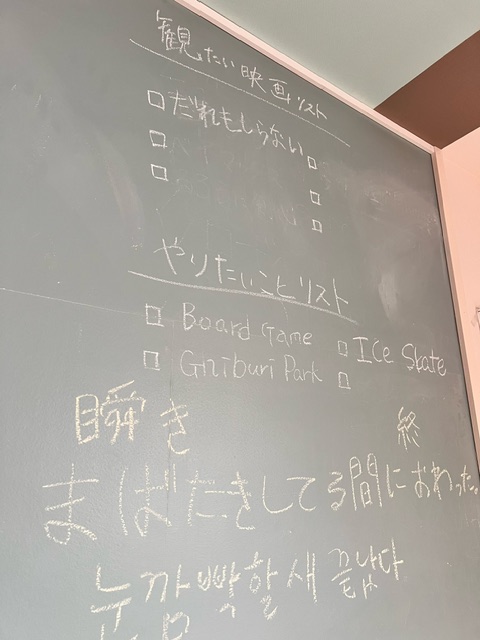 観たい映画リスト
□ だれもしらない □
□ □
□ □
やりたいことリスト
□ Board Game □ Ice Skate
□ Ghiburi Park □
瞬き 終
まばたきしてる間におわった..
눈깜빡할새 끝났다